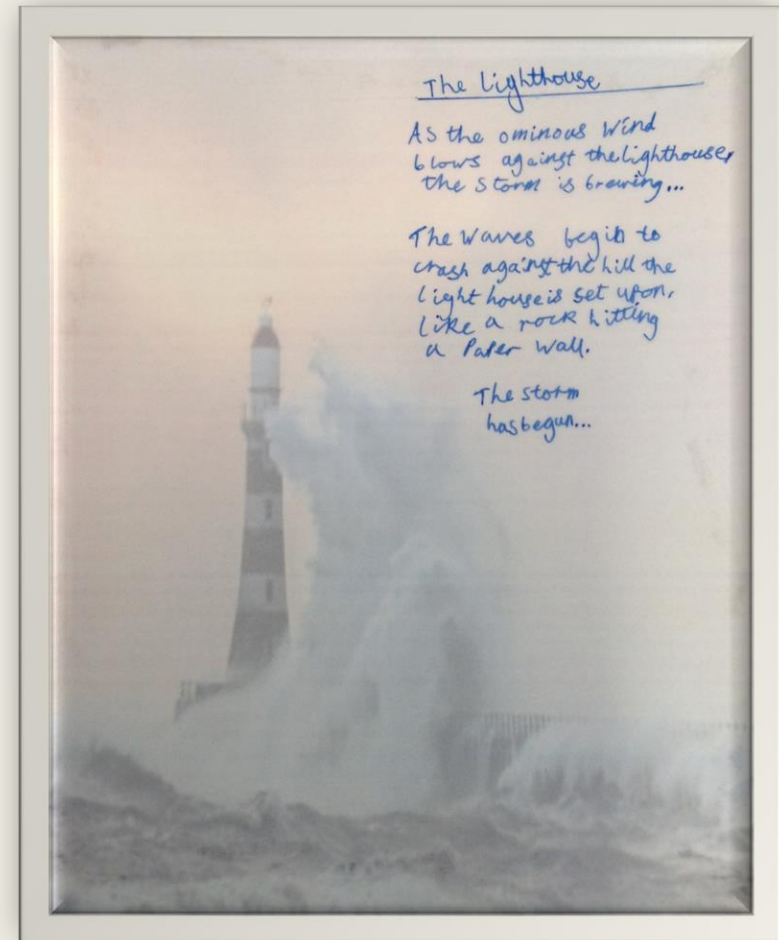 The Lighthouse
As the ominous wind
blows against the lighthouse,
the storm is brewing...
The waves begin to
crash against the hill the
light house is set upon,
like a rock hitting
a Paper wall.
The storm
has begun...